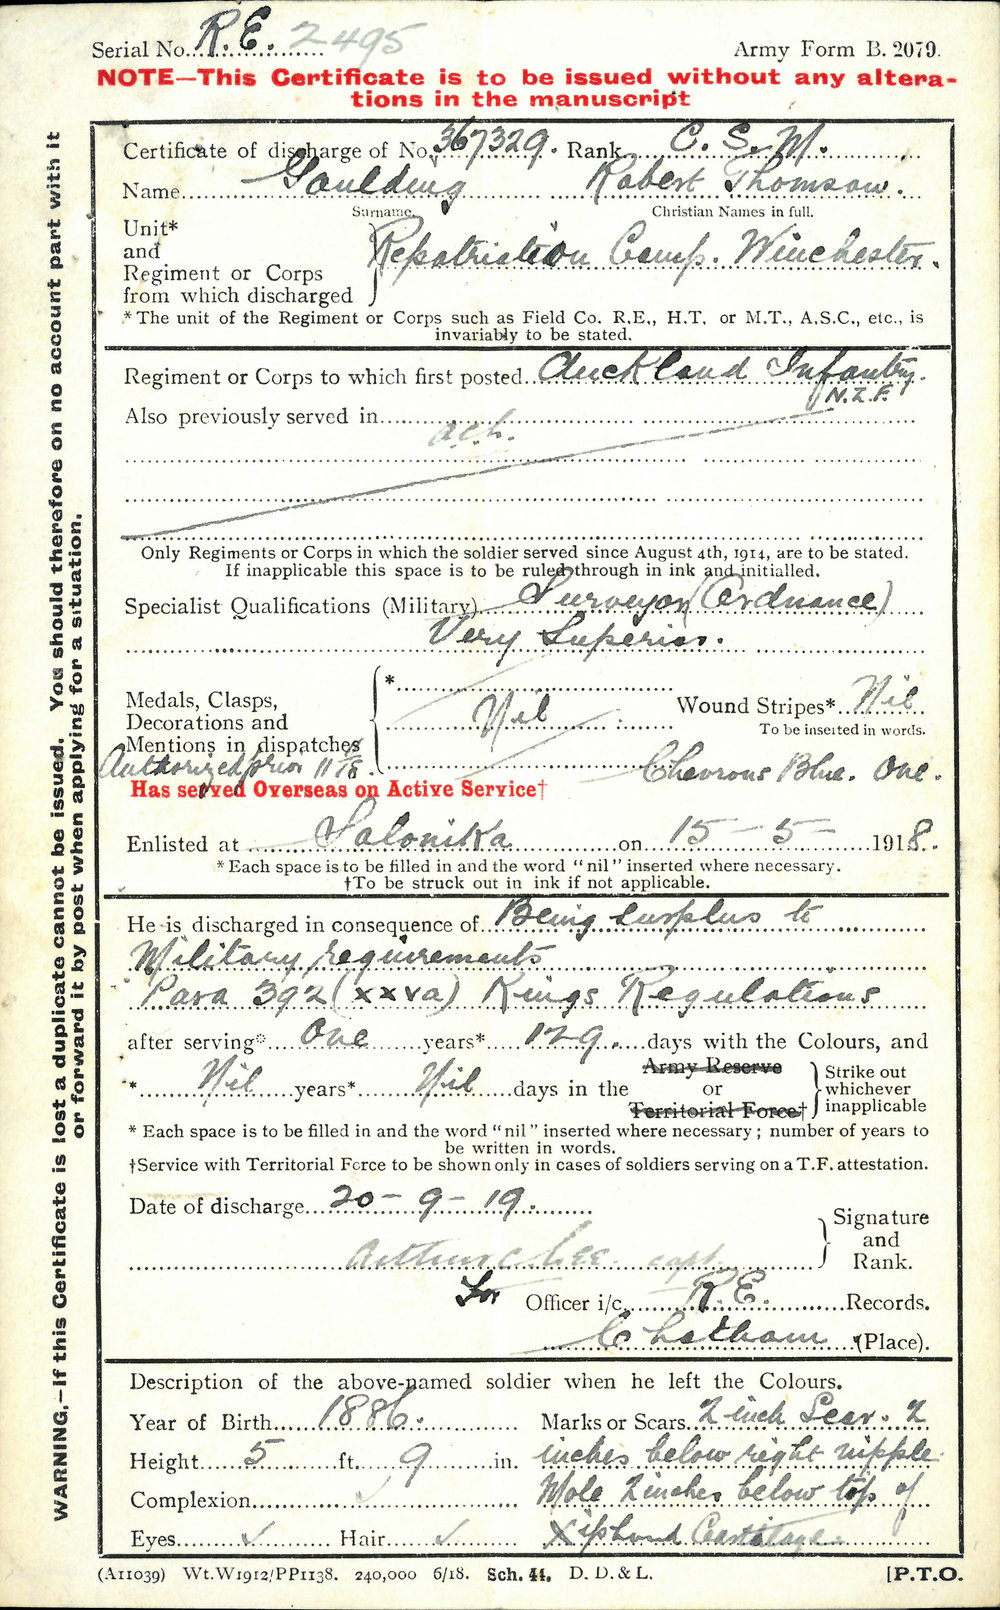 Serial No. R.E. 2495 Army Form B. 2079.
NOTE—This Certificate is to be issued without any altera-
tions in the manuscript
WARNING.—If this Certificate is lost a duplicate cannot be issued. You should therefore on no account part with it
or forward it by post when applying for a situation.
Certificate of discharge of No. 367329. Rank C. S. M.
Name Goulding Robert Thomson.
Surname. Christian Names in full.
Unit*
and
Regiment or Corps
from which discharged
Repatriation Camp. Winchester.
* The unit of the Regiment or Corps such as Field Co. R.E., H.T. or M.T., A.S.C., etc., is
invariably to be stated.
Regiment or Corps to which first posted Auckland Infantry.
N.Z.F.
Also previously served in
Only Regiments or Corps in which the soldier served since August 4th, 1914, are to be stated.
If inapplicable this space is to be ruled through in ink and initialled.
Specialist Qualifications (Military) Surveyor (Ordnance)
Very Superior.
Medals, Clasps,
Decorations and
Mentions in dispatches
* Nil
Wound Stripes* Nil
To be inserted in words.
Authorized prior 11/11/18. Chevrons Blue. One.
Has served Overseas on Active Service†
Enlisted at Salonika on 15 - 5 - 1918.
* Each space is to be filled in and the word "nil" inserted where necessary.
†To be struck out in ink if not applicable.
He is discharged in consequence of Being surplus to
Military requirements
Para 392 (xxva) Kings Regulations
after serving* One years* 129 days with the Colours, and
* Nil years* Nil days in the Army Reserve or Territorial Force† Strike out whichever inapplicable
* Each space is to be filled in and the word "nil" inserted where necessary; number of years to
be written in words.
†Service with Territorial Force to be shown only in cases of soldiers serving on a T.F. attestation.
Date of discharge 20 - 9 - 19.
Arthur C. Lee. capt. Signature and Rank.
For Officer i/c R.E. Records.
Chatham (Place).
Description of the above-named soldier when he left the Colours.
Year of Birth 1886. Marks or Scars 2 inch Scar. 2
Height 5 ft. 9 in. inches below right nipple
Complexion ✓ Mole 2 inches below top of
Eyes ✓ Hair ✓ Xiphoid Cartilage
(A11039) Wt.W1912/PP1138. 240,000 6/18. Sch. 44. D. D. & L. [P.T.O.